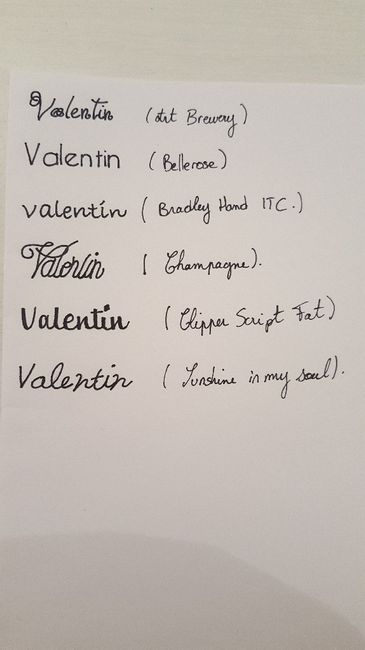 Valentin (Art Brewery)
Valentin (Bellerose)
valentin (Bradley Hand ITC.)
Valentin ( Champagne).
Valentin ( Clipper Script Fat)
Valentin ( Sunshine in my soul).